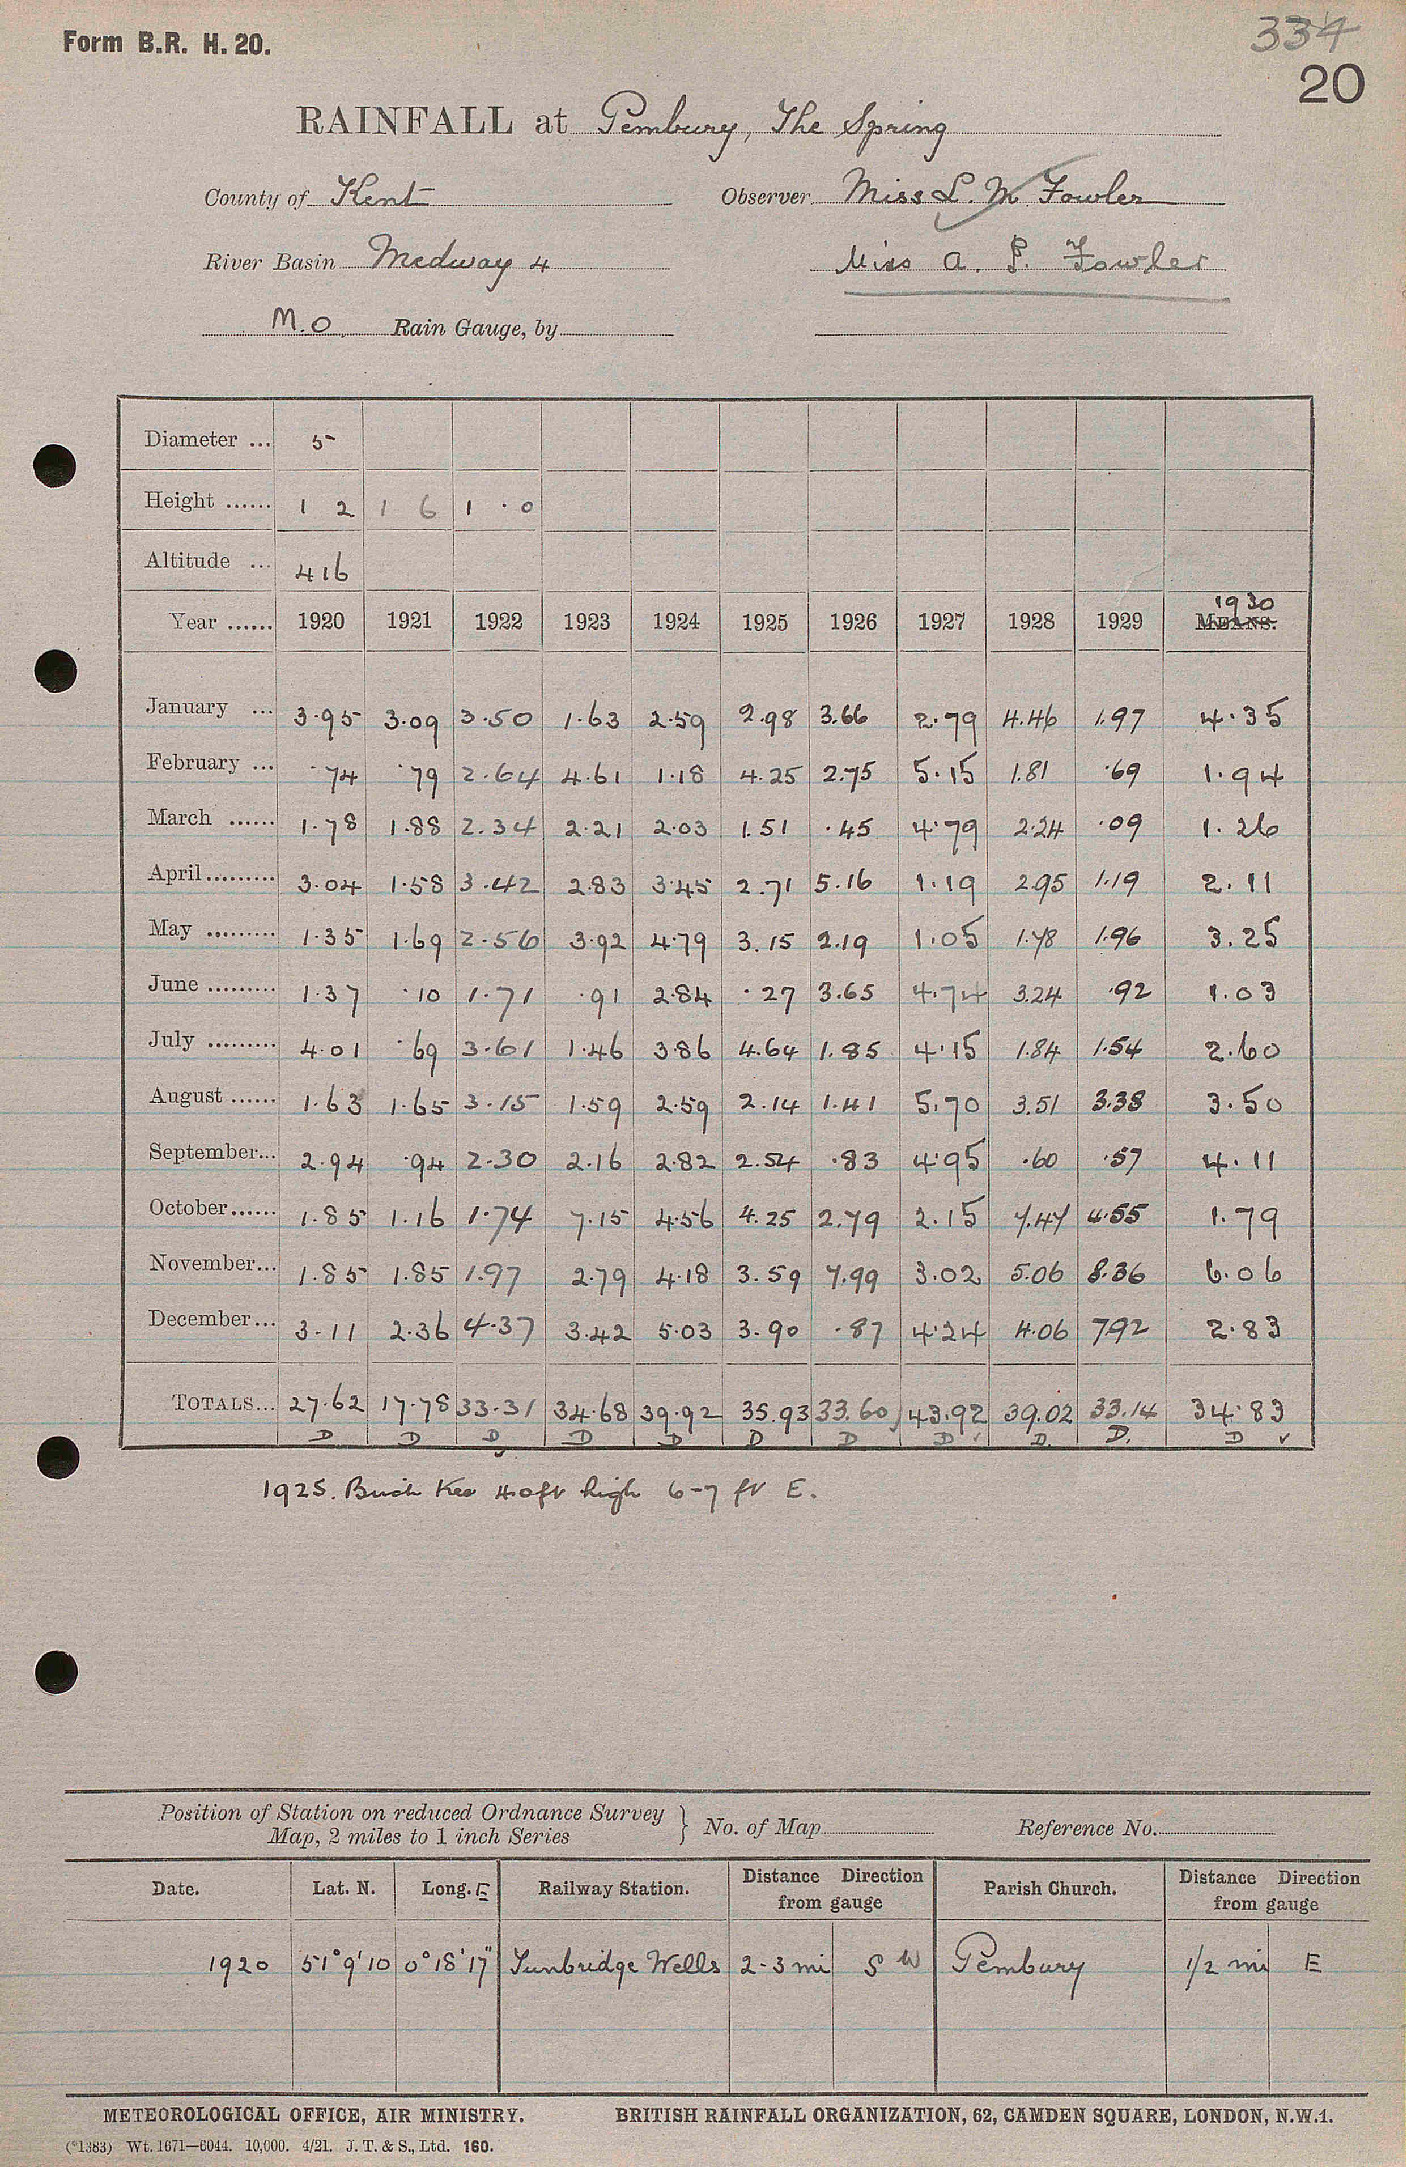 Form B.R. H. 20.
334
20
RAINFALL at Pembury, The Spring
County of Kent Observer Miss L. M. Fowler
River Basin Medway 4 Miss A. P. Fowler
M.O. Rain Gauge, by
Diameter ... 5
Height ...... 1 2 1 6 1 . 0
Altitude ... 416
1930
Year ...... 1920 1921 1922 1923 1924 1925 1926 1927 1928 1929 MEANS.
January ... 3.95 3.09 3.50 1.63 2.59 2.98 3.66 2.79 4.46 1.97 4.35
February ... .74 .79 2.64 4.61 1.18 4.25 2.75 5.15 1.81 .69 1.94
March ...... 1.78 1.88 2.34 2.21 2.03 1.51 .45 4.79 2.24 .09 1.26
April......... 3.04 1.58 3.42 2.83 3.45 2.71 5.16 1.19 2.95 1.19 2.11
May ......... 1.35 1.69 2.56 3.92 4.79 3.15 2.19 1.05 1.78 1.96 3.25
June ......... 1.37 .10 1.71 .91 2.84 .27 3.65 4.74 3.24 .92 1.03
July ......... 4.01 .69 3.61 1.46 3.86 4.64 1.85 4.15 1.84 1.54 2.60
August ...... 1.63 1.65 3.15 1.59 2.59 2.14 1.41 5.70 3.51 3.38 3.50
September... 2.94 .94 2.30 2.16 2.82 2.54 .83 4.95 .60 .57 4.11
October...... 1.85 1.16 1.74 7.15 4.56 4.25 2.79 2.15 7.47 4.55 1.79
November... 1.85 1.85 1.97 2.79 4.18 3.59 7.99 3.02 5.06 8.36 6.06
December... 3.11 2.36 4.37 3.42 5.03 3.90 .87 4.24 4.06 7.92 2.83
TOTALS... 27.62 17.78 33.31 34.68 39.92 35.93 33.60 43.92 39.02 33.14 34.83
D D D D D D D D ✓ D. D. D ✓
1925. high 6-7 ft E.
Position of Station on reduced Ordnance Survey
Map, 2 miles to 1 inch Series } No. of Map Reference No.
Date. Lat. N. Long. E Railway Station. Distance Direction from gauge Parish Church. Distance Direction from gauge
1920 51°9'10 0°18'17" Tunbridge Wells 2-3 mi S W Pembury 1/2 mi E
METEOROLOGICAL OFFICE, AIR MINISTRY. BRITISH RAINFALL ORGANIZATION, 62, CAMDEN SQUARE, LONDON, N.W.1.
(*1383) Wt. 1671—6044. 10,000. 4/21. J. T. & S., Ltd. 160.